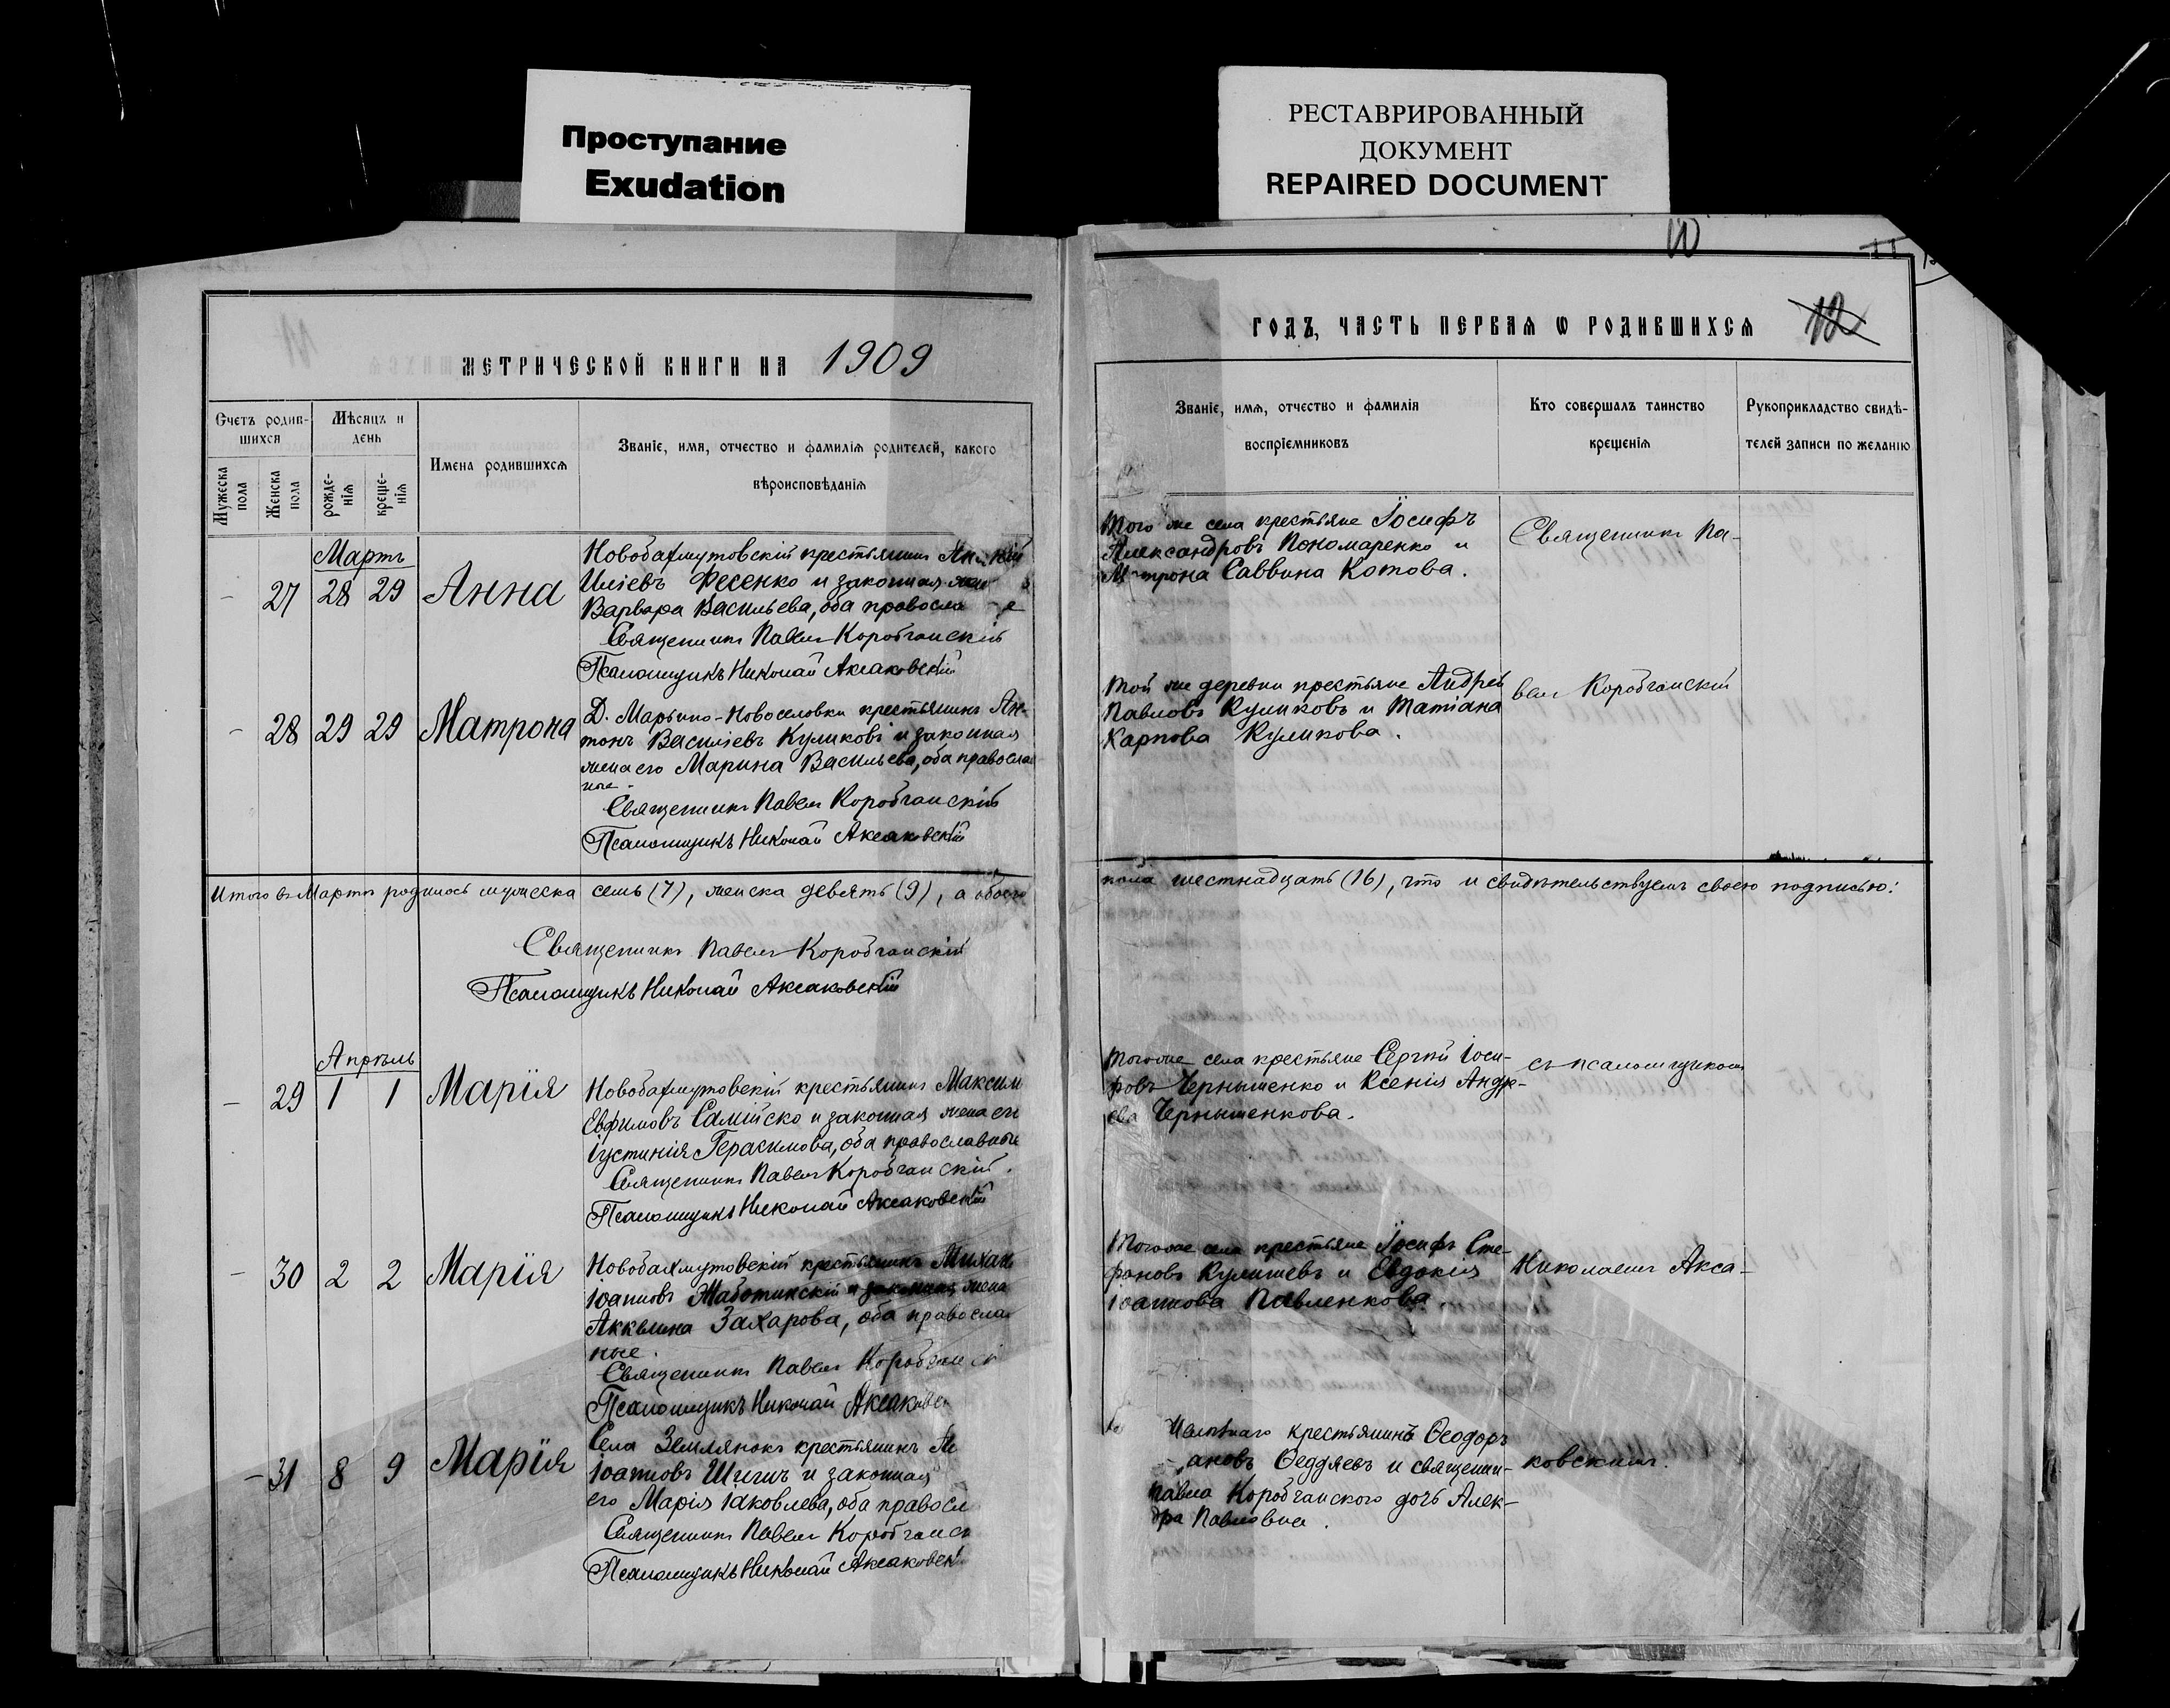 Проступание
Exudation
РЕСТАВРИРОВАННЫЙ
ДОКУМЕНТ
REPAIRED DOCUMENT
МЕТРИЧЕСКОЙ КНИГИ НА 1909
Счетъ родив-
шихся
Мѣсяцъ и
день
Имена родившихся
Званіе, имя, отчество и фамилія родителей, какого
вѣроисповѣданія
Мужеска
пола
Женска
пола
рожде-
нія
креще-
нія
Мартъ
- 27 28 29 Анна
Новобахмутовскій крестьянинъ
Иліевъ Фесенко и законная
Варвара Васильева, оба
Священникъ Павелъ Коробчанскій
Псаломщикъ Николай Аксаковскій
- 28 29 29 Матрона
Д. Марьино-Новоселовки крестьянинъ Ан-
тонъ Василіевъ Куликовъ и законная
жена его Марина Васильева, оба правосла
ные.
Священникъ Павелъ Коробчанскій
Псаломщикъ Николай Аксаковскій
Итого въ Мартѣ родилось мужеска семь (7), женска девять (9), а обоего
Священникъ Павелъ Коробчанскій
Псаломщикъ Николай Аксаковскій
Апрѣль
- 29 1 1 Марія
Новобахмутовскій крестьянинъ Максим
Евфимовъ Самійско и законная жена его
Іустинія Герасимова, оба православные
Священникъ Павелъ Коробчанскій.
Псаломщикъ Николай Аксаковскій
- 30 2 2 Марія
Новобахмутовскій крестьянинъ Михаилъ
Іоанновъ Жаботинскій и законная жена
Акквлина Захарова, оба правосла
ные.
Священникъ Павелъ
Псаломщикъ Николай
- 31 8 9 Марія
Села Землянокъ крестьянинъ
Іоанновъ Шигинъ и законная
его Марія Іаковлева, оба правосл
Священникъ Павелъ
Псаломщикъ Николай
11
12
ГОДЪ, ЧАСТЬ ПЕРВАЯ Ѡ РОДИВШИХСЯ
Званіе, имя, отчество и фамилія
воспріемниковъ
Кто совершалъ таинство
крещенія
Рукоприкладство свидѣ-
телей записи по желанію
Того же села крестьяне Іосифъ
Александровъ Пономаренко и
М трона Саввина Котова.
Священникъ Па-
Той же деревни крестьяне Андрей
Павловъ Куликовъ и Татіана
Карпова Куликова.
велъ Коробчанскій
пола шестнадцать (16), что и свидѣтельствуемъ своею подписью:
Того же села крестьяне Сергій Іоси-
фовъ Чернышенко и Ксенія Андре-
ева Чернышенкова.
съ псаломщикомъ
Того же села крестьяне Іосифъ Сте-
фановъ Кулишевъ и Евдокія
Іоаннова Павленкова.
Николаемъ Акса-
крестьянинъ Ѳеодоръ
ановъ Ѳеддяевъ и священни-
Павла Коробчанского дочь Алек-
дра Павловна.
ковскимъ.